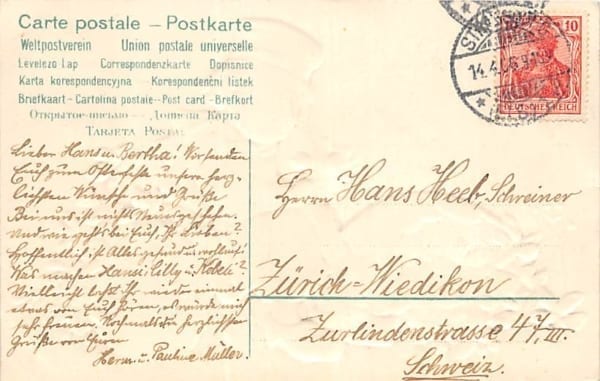 Carte postale – Postkarte
Weltpostverein Union postale universelle
Levelezo Lap Correspondenzkarte Dopisnice
Karta korespondencyjna – Korespondenční listek
Briefkaart – Cartolina postale – Post card – Brefkort
Открытое письмо – Дописна Карта
TARJETA POSTAL
Lieber Hans u. Bertha! Wir senden
Euch zum Osterfeste unsere herz-
lichsten Wünsche und Grüße
Bei uns ist nichts Neues geschehen.
Und wie gehts bei Euch, Ihr Lieben?
Hoffentlich ist Alles gesund u. wohlauf!
Was machen Hansi, Cilly u. Köbeli?
Vielleicht laßt Ihr mir einmal
etwas von Euch hören, es würde mich
sehr freuen. Nochmals die herzlichsten
Grüße von Euren
Herm. u. Pauline Müller.
10
DEUTSCHES REICH
STRASSBURG
14.4.06
Herrn Hans Heeb, Schreiner
Zürich-Wiedikon
Zurlindenstrasse 47, III.
Schweiz.